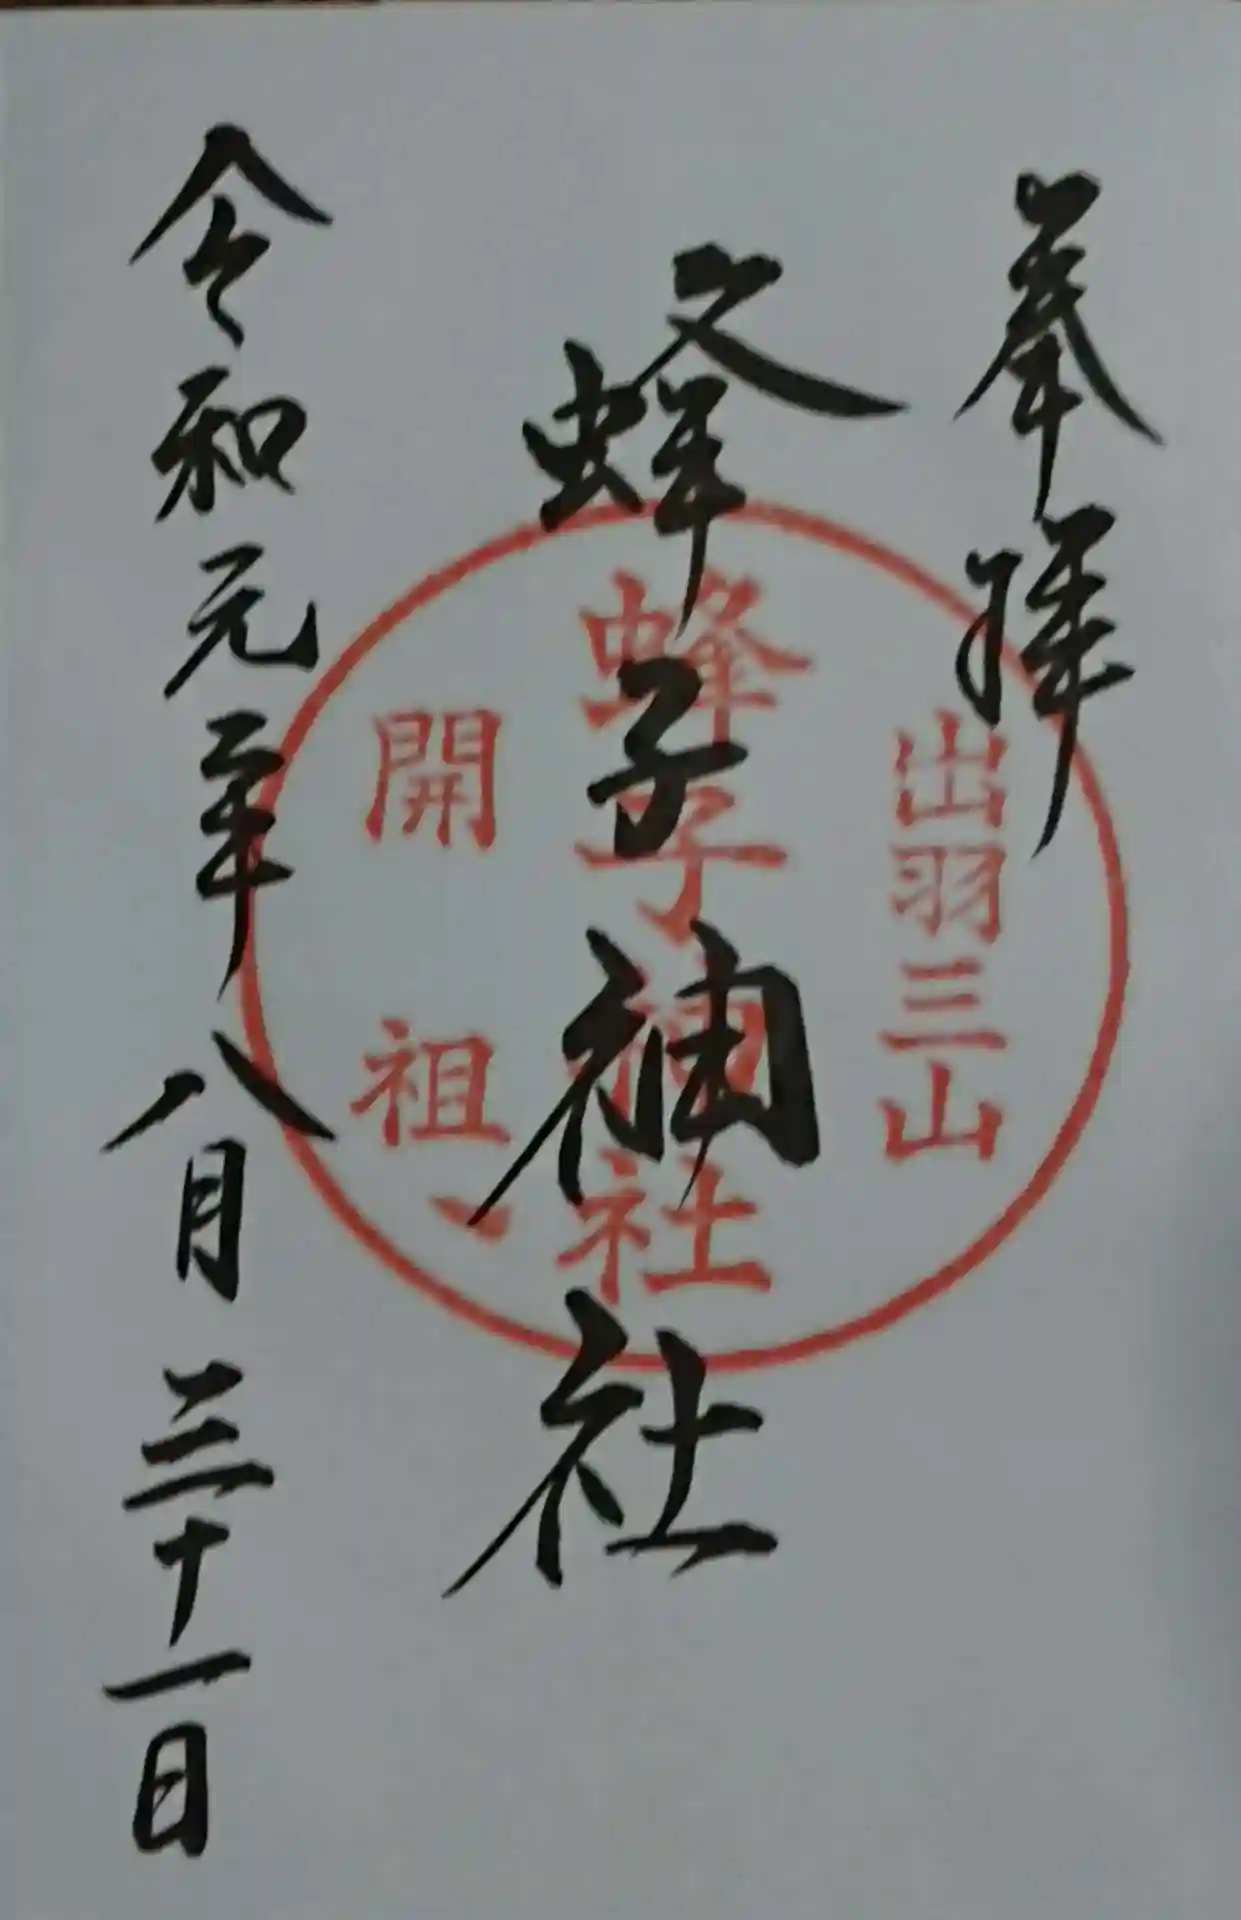 奉拝
蜂子神社
令和元年八月三十一日
出羽三山
蜂子神社
開祖